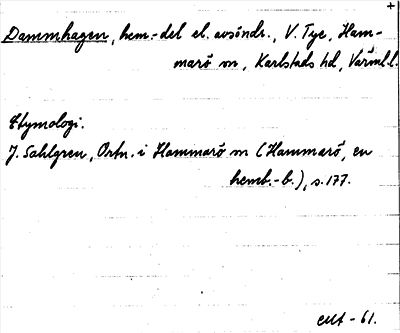 +
Dammhagen, hem.-del el. avsöndr., V. Tye, Ham-
marö sn, Karlstads hd, Värml.l.
Etymologi.
J. Sahlgren, Ortn. i Hammarö sn (Hammarö, en
hemb.-b.), s. 177.
-61.